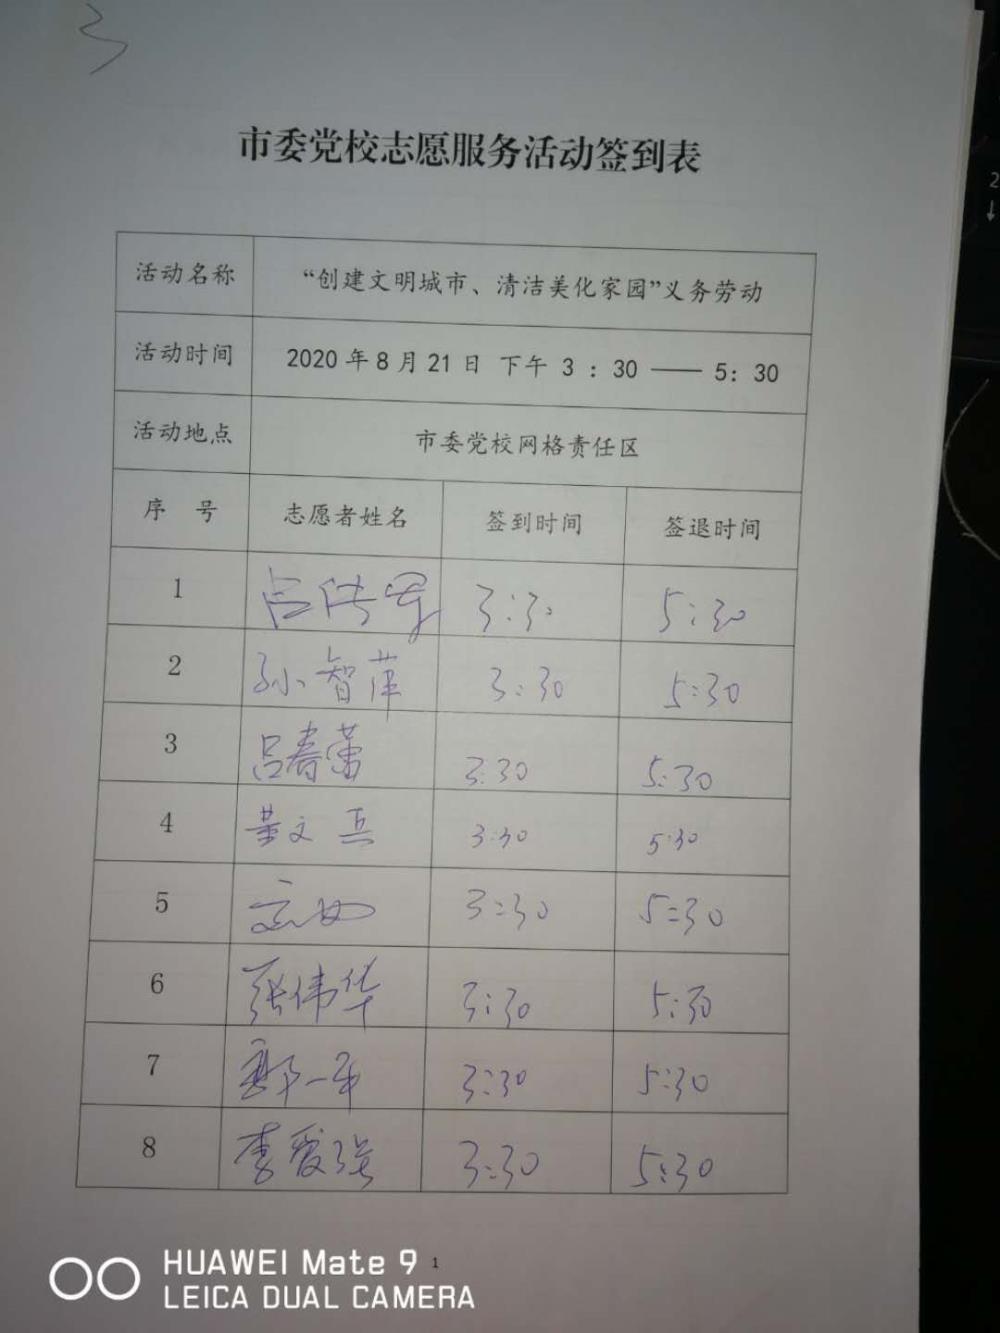 3
市委党校志愿服务活动签到表
活动名称 “创建文明城市、清洁美化家园”义务劳动
活动时间 2020年8月21日 下午 3 : 30 —— 5: 30
活动地点 市委党校网格责任区
序 号 志愿者姓名 签到时间 签退时间
1 3:30 5:30
2 孙智萍 3:30 5:30
3 吕春蕾 3:30 5:30
4 3:30 5:30
5 3:30 5:30
6 张伟华 3:30 5:30
7 郭一平 3:30 5:30
8 李爱强 3:30 5:30
1
HUAWEI Mate 9
LEICA DUAL CAMERA